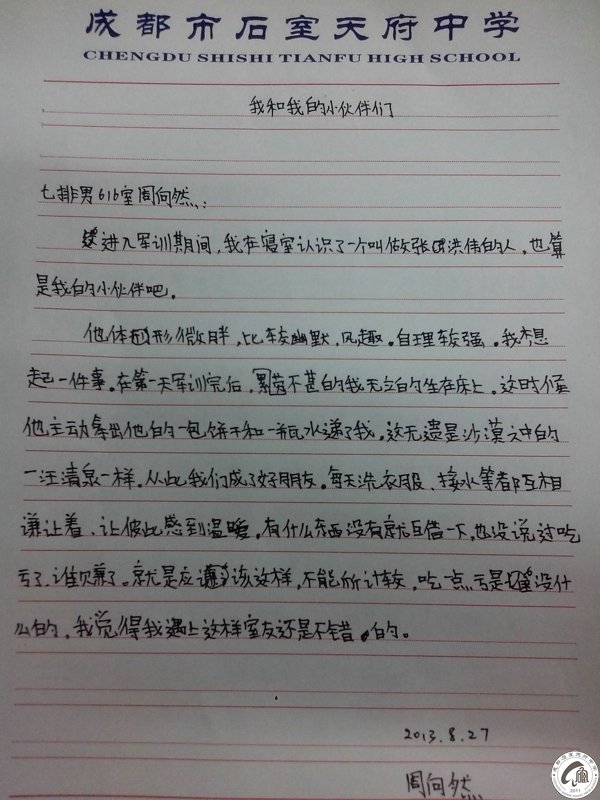 成都市石室天府中学
CHENGDU SHISHI TIANFU HIGH SCHOOL
我和我的小伙伴们
七排男616室周向然:
进入军训期间,我在寝室认识了一个叫做张洪伟的人,也算
是我的小伙伴吧。
他体形微胖,比较幽默,风趣。自理较强。我想
起一件事。在第一天军训完后,累不甚的我无力的坐在床上。这时候
他主动拿出他的一包饼干和一瓶水递了我。这无遗是沙漠之中的
一汪清泉一样。从此我们成了好朋友。每天洗衣服、接水等都互相
谦让着,让彼此感到温暖。有什么东西没有就互借一下,也没说过吃
亏了,谁欠赚了。就是应该这样,不能所计较,吃一点亏是没什
么的,我觉得我遇上这样室友还是不错的。
2013.8.27
周向然
2011